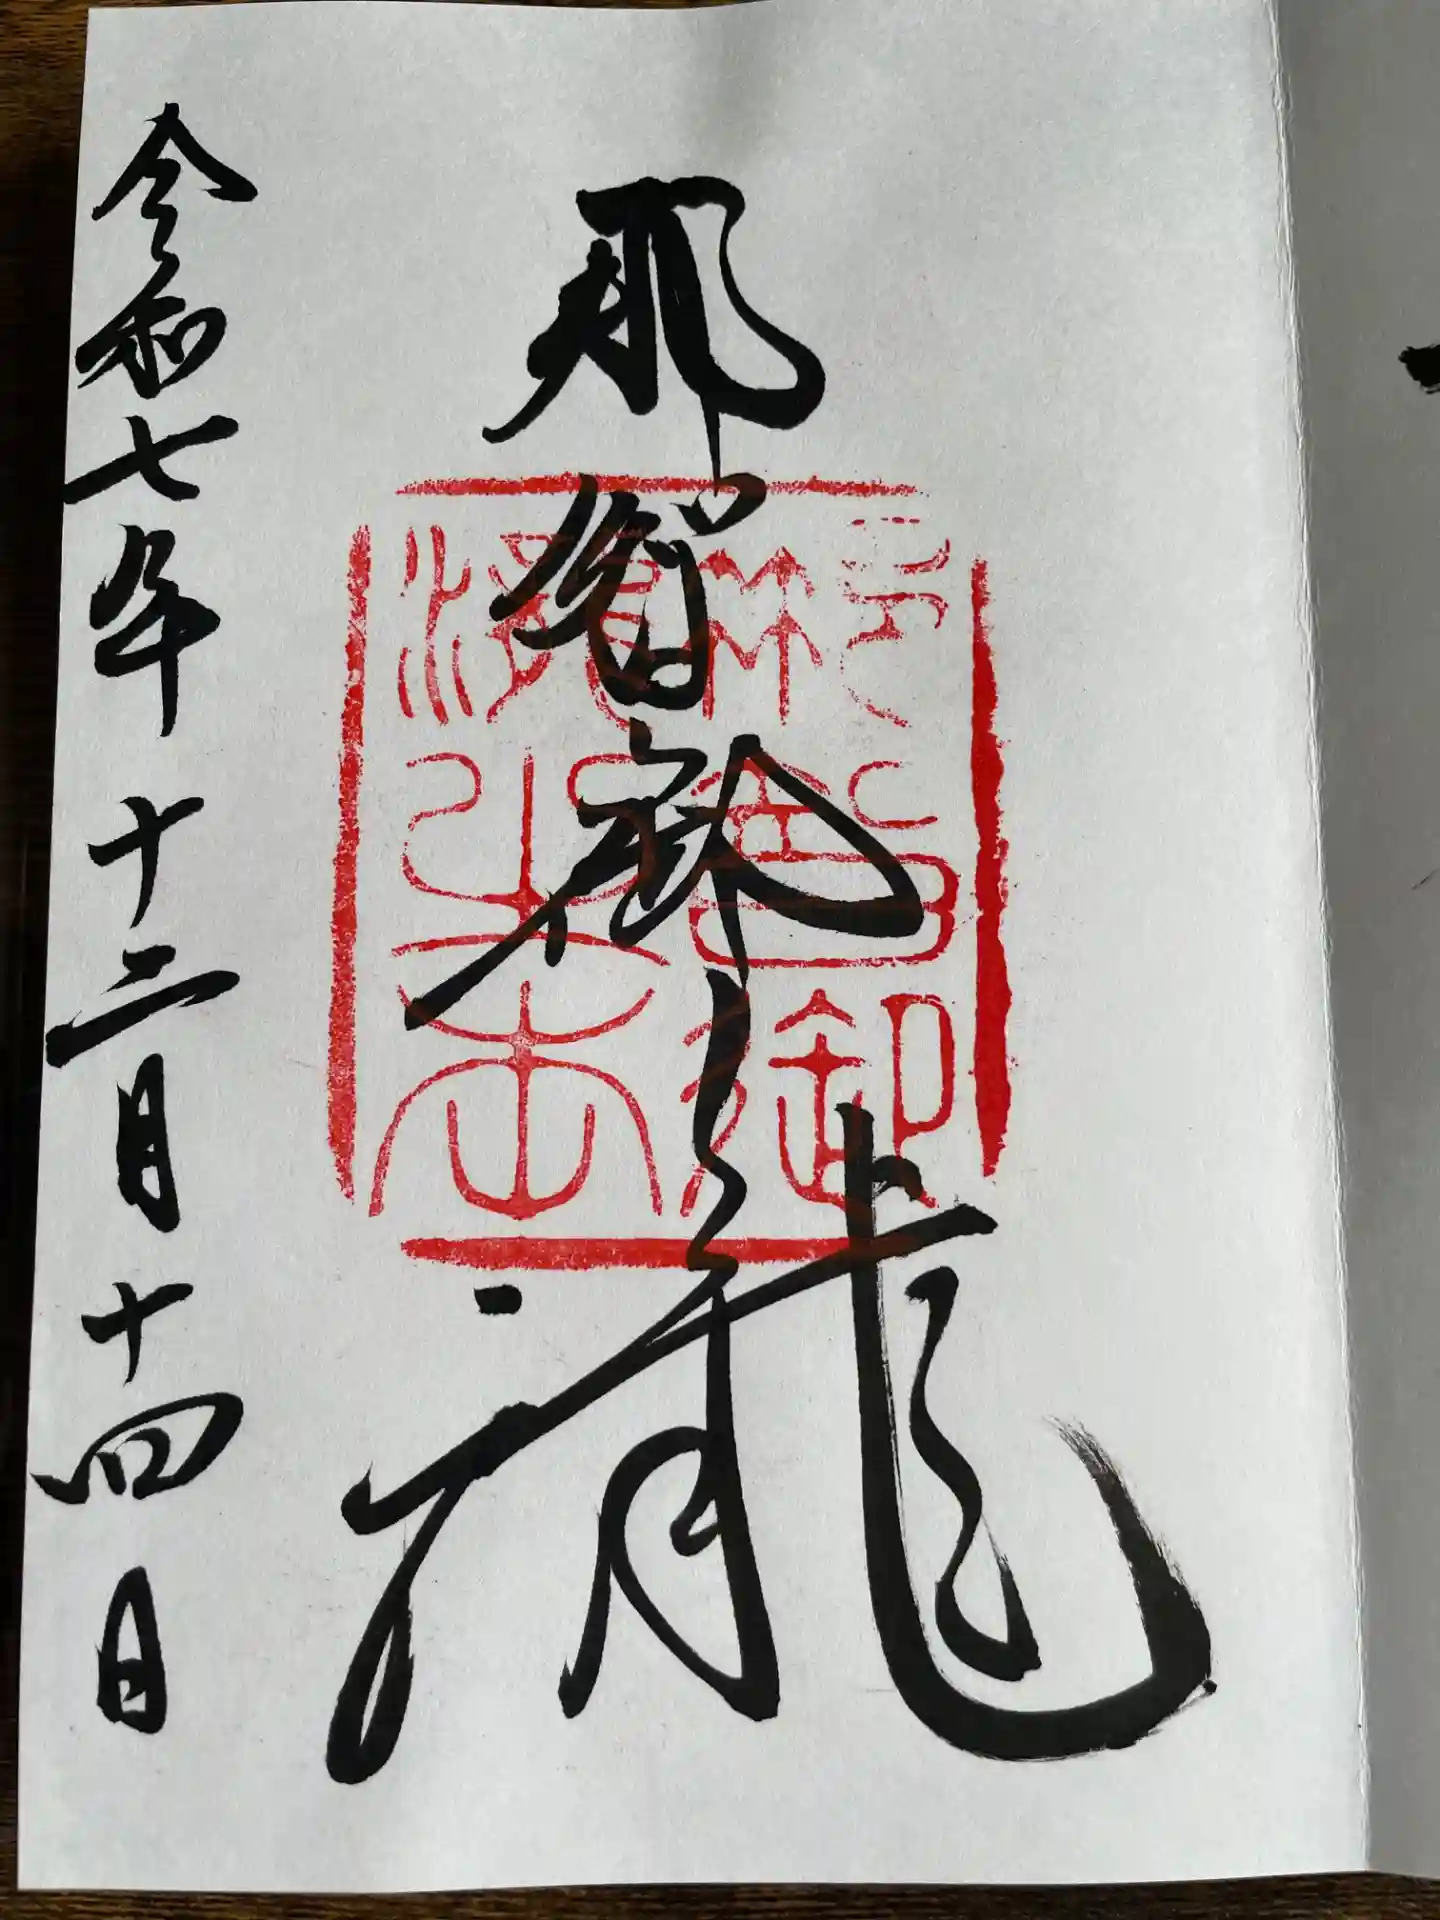 那智御瀧
令和七年十二月十四日